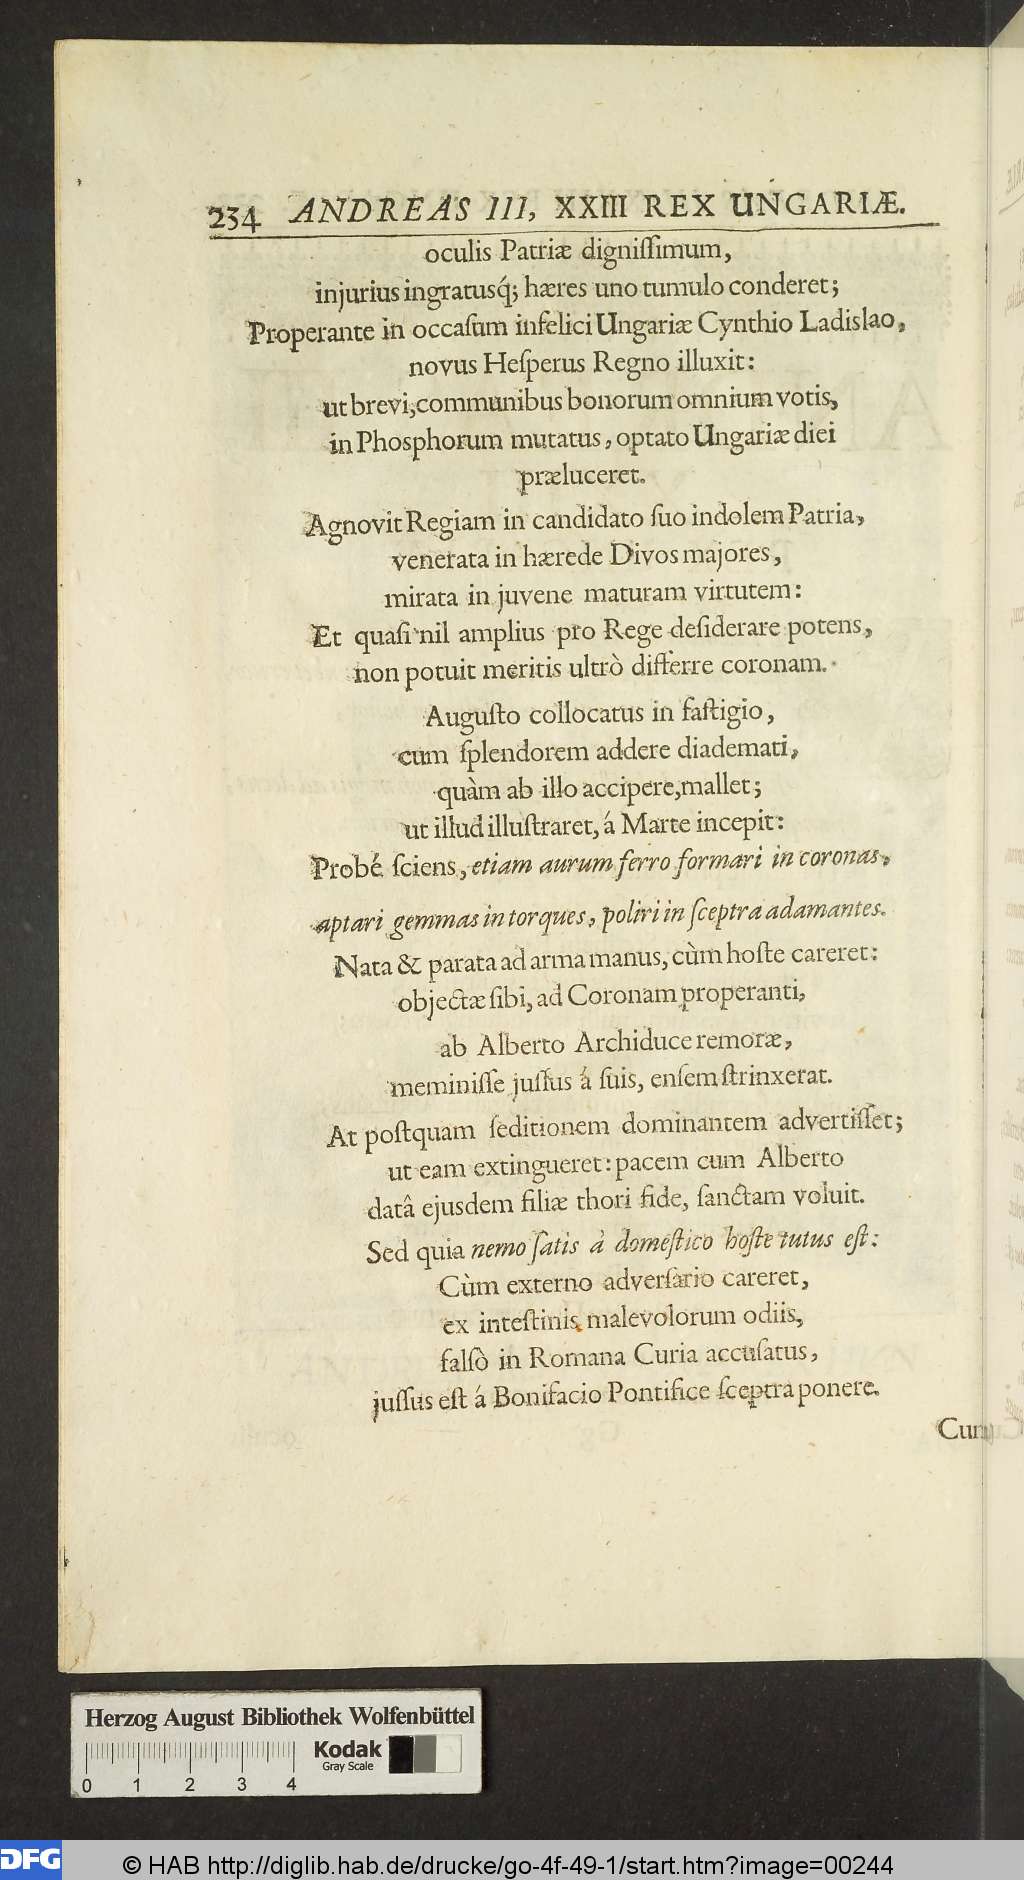 234 ANDREAS III, XXIII REX UNGARIÆ.
oculis Patriæ digniſſimum,
injurius ingratusq́; hæres uno tumulo conderet;
Properante in occaſum infelici Ungariæ Cynthio Ladislao,
novus Heſperus Regno illuxit:
ut brevi, communibus bonorum omnium votis,
in Phosphorum mutatus, optato Ungariæ diei
præluceret.
Agnovit Regiam in candidato ſuo indolem Patria,
venerata in hærede Divos majores,
mirata in juvene maturam virtutem:
Et quaſi nil amplius pro Rege deſiderare potens,
non potuit meritis ultrò differre coronam.
Auguſto collocatus in faſtigio,
cum ſplendorem addere diademati,
quàm ab illo accipere, mallet;
ut illud illuſtraret, á Marte incepit:
Probé ſciens, etiam aurum ferro formari in coronas,
aptari gemmas in torques, poliri in ſceptra adamantes.
Nata & parata ad arma manus, cùm hoſte careret:
objectæ ſibi, ad Coronam properanti,
ab Alberto Archiduce remoræ,
meminiſſe juſſus á ſuis, enſem ſtrinxerat.
At poſtquam ſeditionem dominantem advertiſſet;
ut eam extingueret: pacem cum Alberto
datâ ejusdem filiæ thori fide, ſanctam voluit.
Sed quia nemo ſatis à domeſtico hoſte tutus eſt:
Cùm externo adverſario careret,
ex inteſtinis malevolorum odiis,
falſò in Romana Curia accuſatus,
juſſus eſt á Bonifacio Pontifice ſceptra ponere.
Cum
Herzog August Bibliothek Wolfenbüttel
Kodak
Gray Scale
0 1 2 3 4
DFG
© HAB http://diglib.hab.de/drucke/go-4f-49-1/start.htm?image=00244